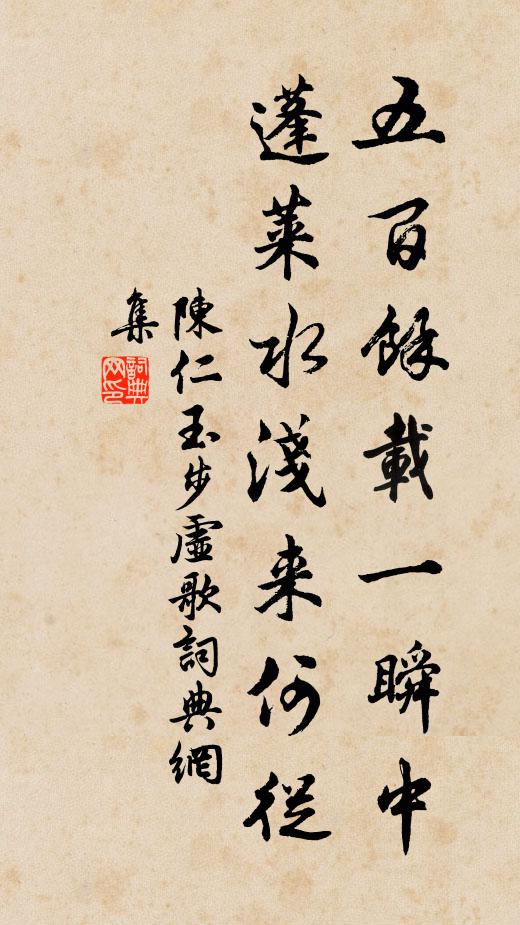 五百餘載一瞬中
蓬萊水淺来何從
陳仁玉步虛歌詞典網
集
詞典
网印